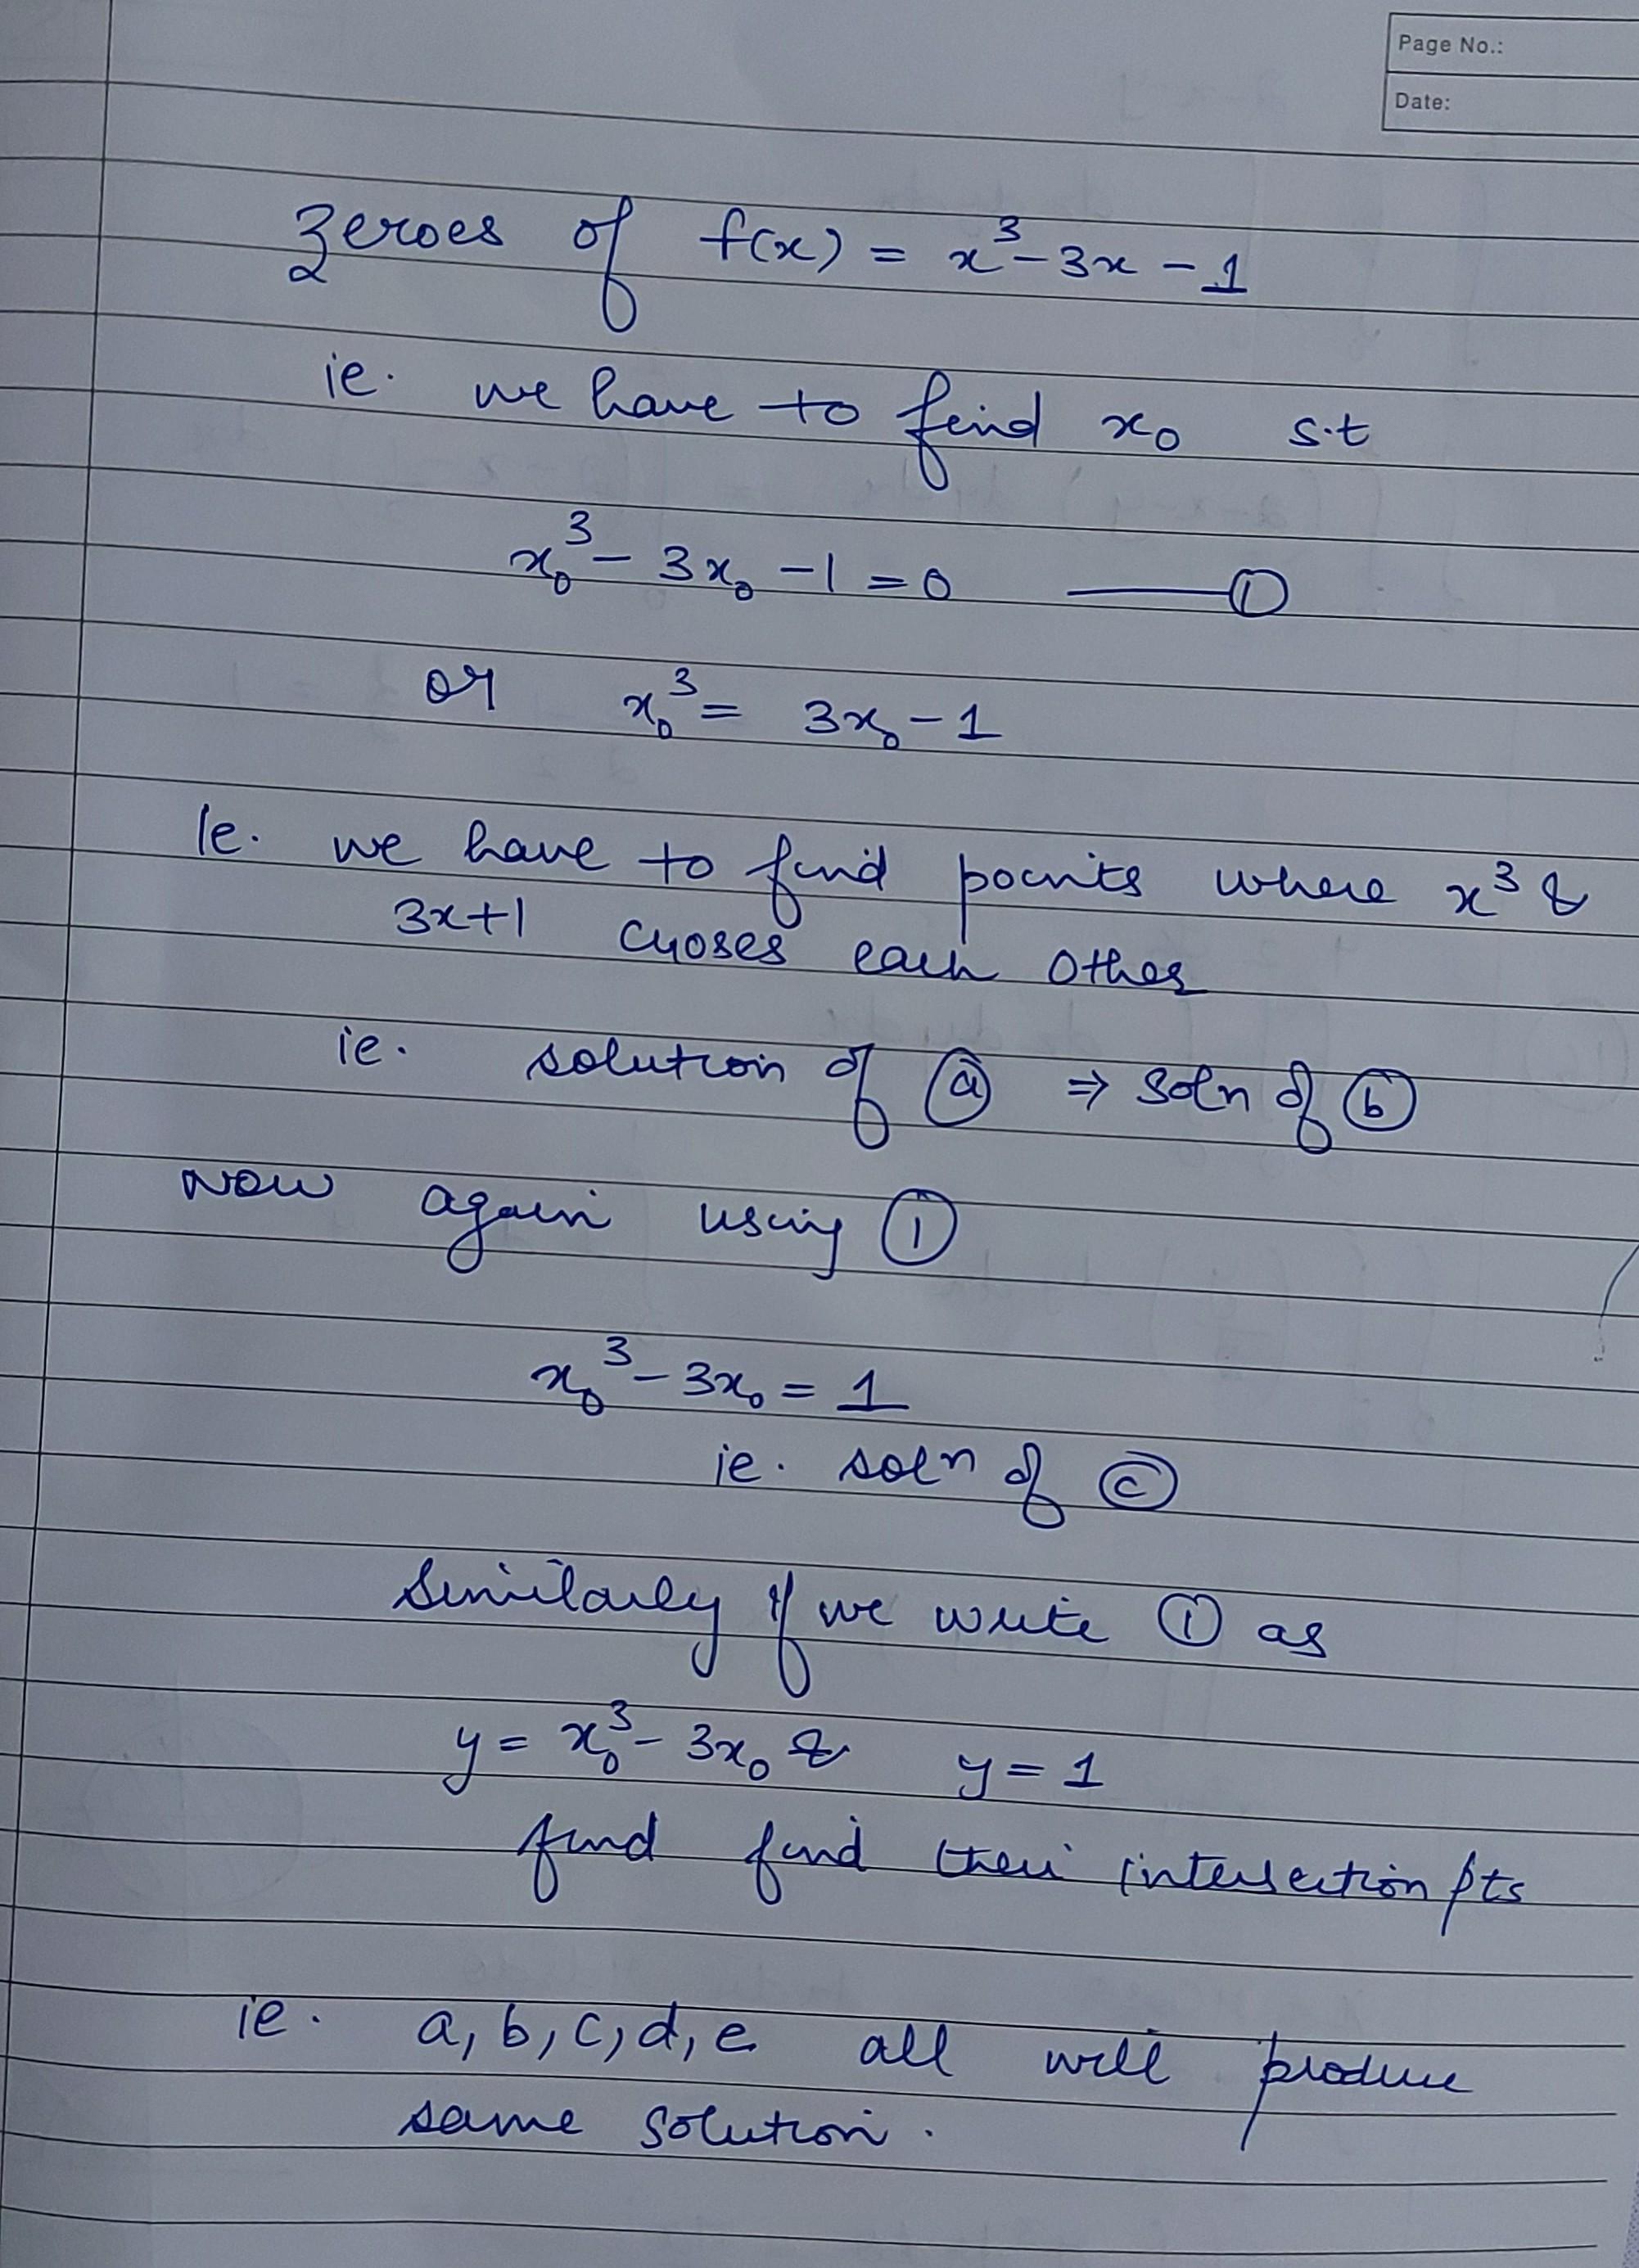 Page No.:
Date:
zeroes of f(x) = x³ - 3x - 1
ie. we have to find x₀ s.t
x₀³ - 3x₀ - 1 = 0 —— ①
or x₀³ = 3x₀ - 1
Ie. we have to find points where x³ &
3x+1 croses each other
ie. solution of ⓐ ⇒ soln of ⓑ
Now again using ①
x₀³ - 3x₀ = 1
ie. soln of ⓒ
Similarly if we write ① as
y = x₀³ - 3x₀ & y = 1
find find their intersection pts
ie. a, b, c, d, e all will produce
same solution.